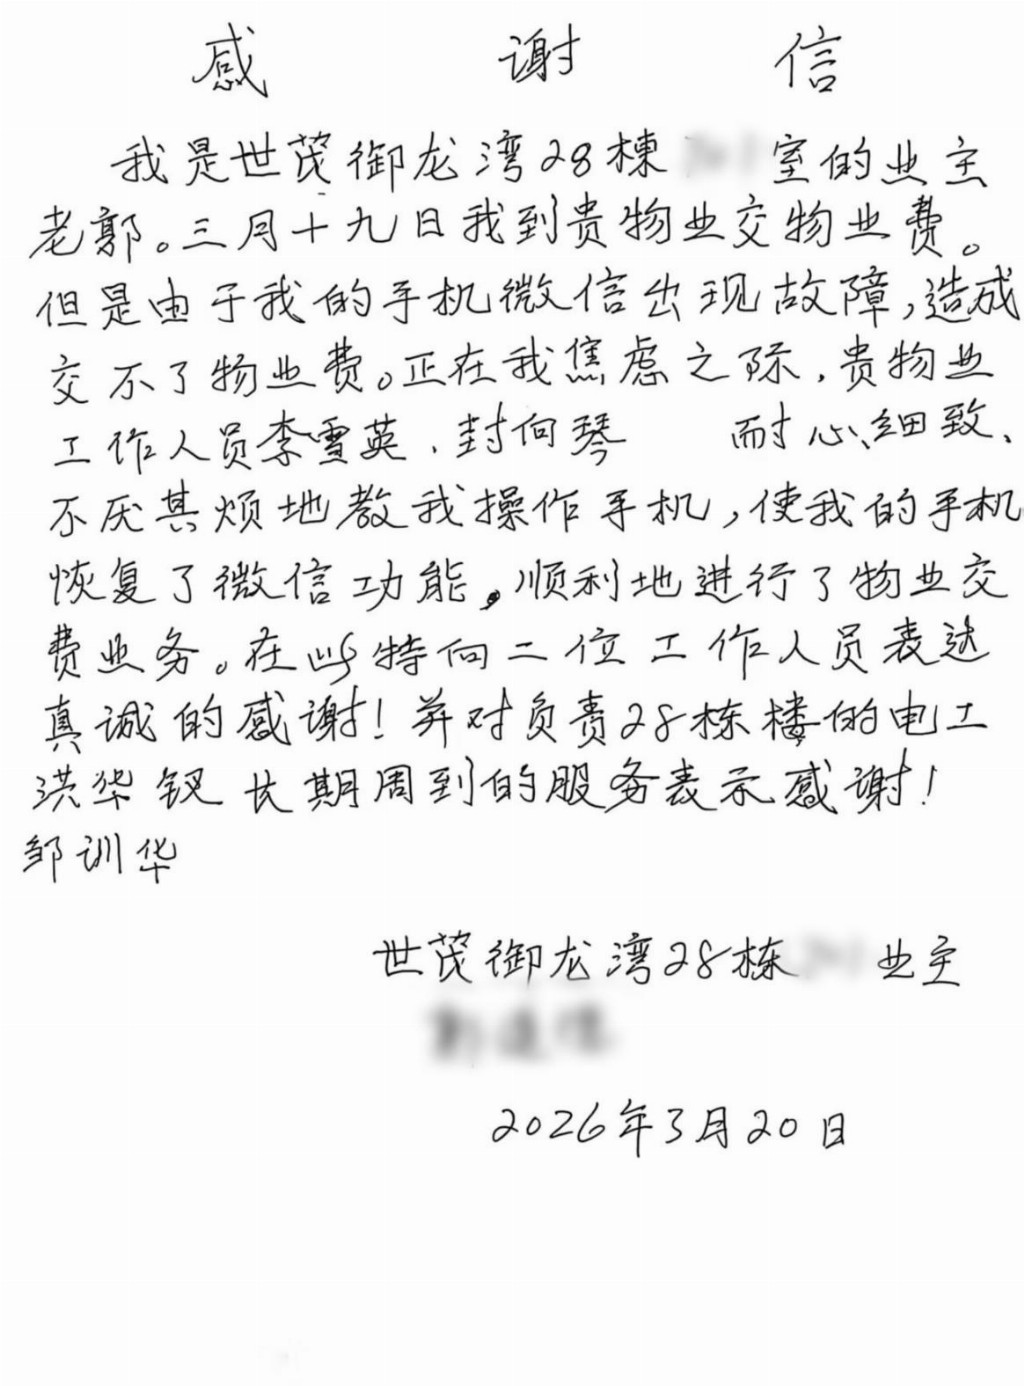 感谢信
我是世茂御龙湾28栋室的业主
老郭。三月十九日我到贵物业交物业费。
但是由于我的手机微信出现故障,造成
交不了物业费。正在我焦虑之际,贵物业
工作人员李雪英、封向琴 耐心、细致、
不厌其烦地教我操作手机,使我的手机
恢复了微信功能。顺利地进行了物业交
费业务。在此特向二位工作人员表达
真诚的感谢!并对负责28栋楼的电工
洪华钗长期周到的服务表示感谢!
邹训华
世茂御龙湾28栋业主
2026年3月20日